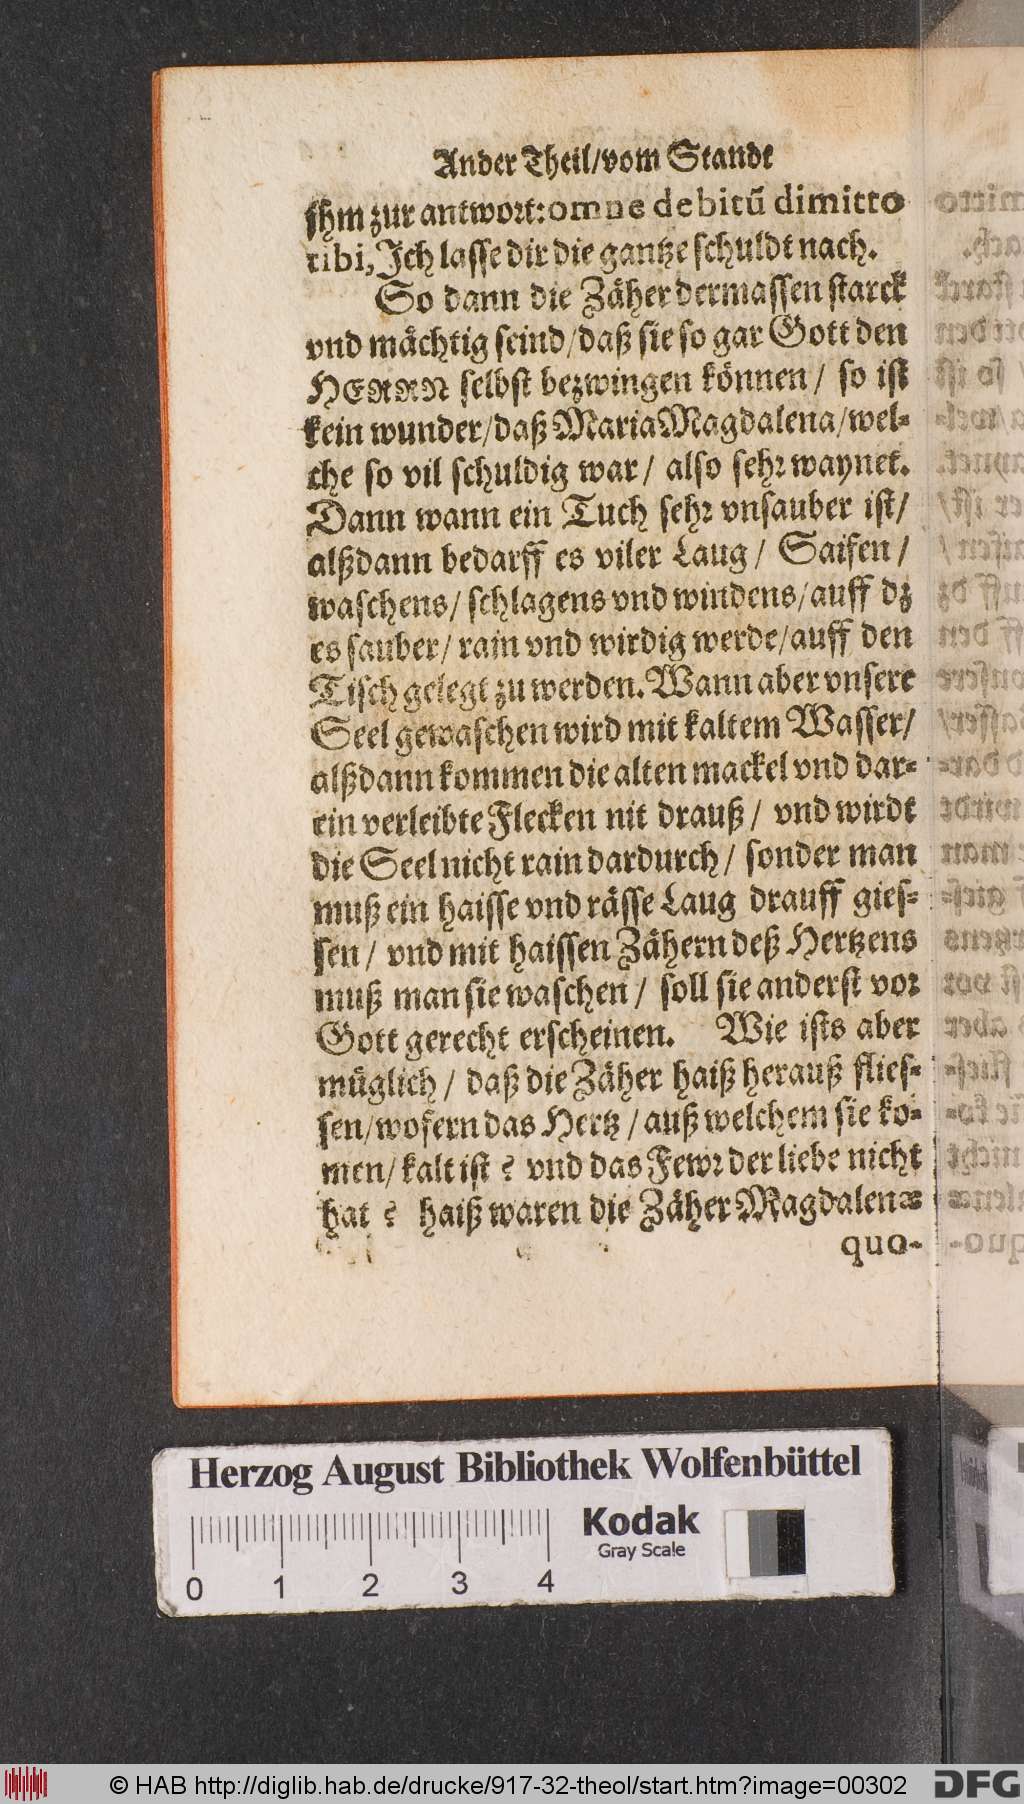 Ander Theil/vom Standt
jhm zur antwort: omne debitū dimitto
tibi, Jch lasse dir die gantze schuldt nach.
So dann die Zäher dermassen starck
vnd mächtig seind/daß sie so gar Gott den
HERRN selbst bezwingen können/ so ist
kein wunder/daß Maria Magdalena/wel-
che so vil schuldig war/ also sehr waynet.
Dann wann ein Tuch sehr vnsauber ist/
alßdann bedarff es viler Laug/ Saifen/
waschens/ schlagens vnd windens/auff dz
es sauber/ rain vnd wirdig werde/auff den
Tisch gelegt zu werden. Wann aber vnsere
Seel gewaschen wird mit kaltem Wasser/
alßdann kommen die alten mackel vnd dar-
ein verleibte Flecken nit drauß/ vnd wirdt
die Seel nicht rain dardurch/ sonder man
muß ein haisse vnd rässe Laug drauff gies-
sen/ vnd mit haissen Zähern deß Hertzens
muß man sie waschen/ soll sie anderst vor
Gott gerecht erscheinen. Wie ists aber
müglich/ daß die Zäher haiß herauß flies-
sen/wofern das Hertz/auß welchem sie ko-
men/kalt ist? vnd das Fewr der liebe nicht
hat? haiß waren die Zäher Magdalenæ
quo-
Herzog August Bibliothek Wolfenbüttel
Kodak
Gray Scale
0 1 2 3 4
© HAB http://diglib.hab.de/drucke/917-32-theol/start.htm?image=00302
DFG